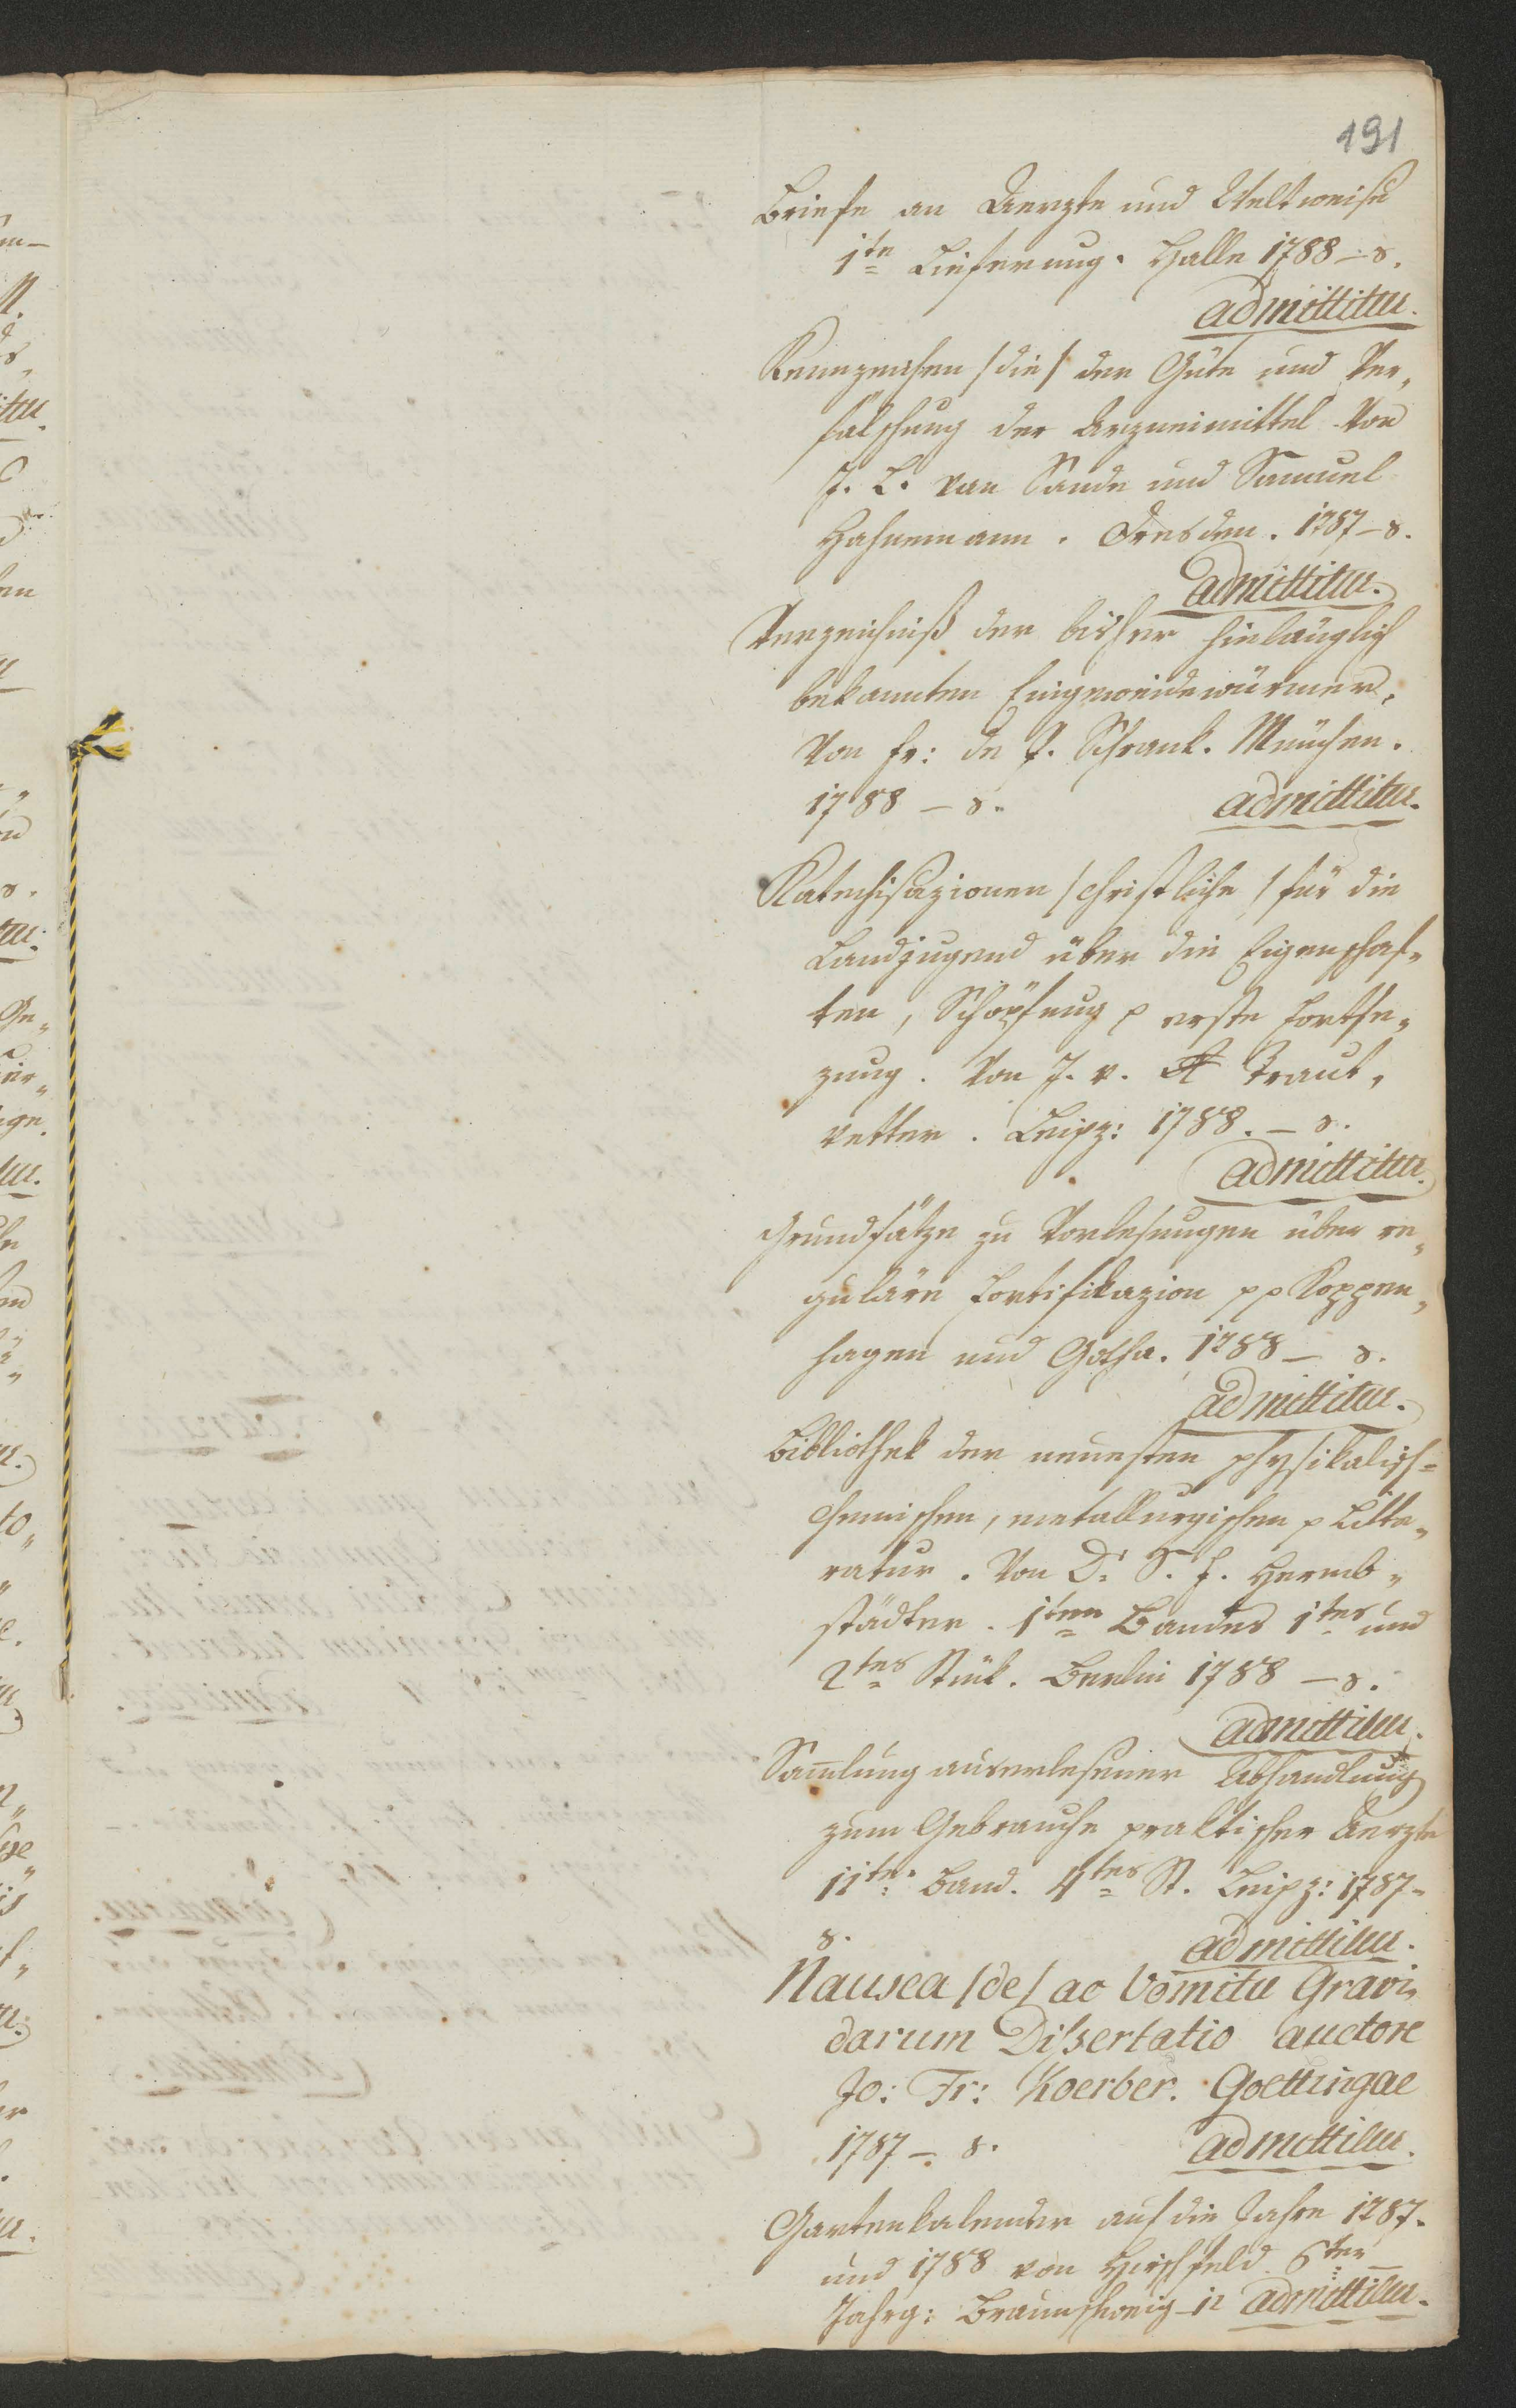 191
Briefe an Aerzte und Weltweise
1te Lieferung. Halle 1788 – 8.
admittitur.
Kennzeichen /die/ der Güte und Ver„
fälschung der Arzneimittel. Von
J. B. van Sande und Samuel
Hahnemann. Dresden. 1787 – 8.
admittitur.
Verzeichniß der bisher hinlänglich
bekannten Eingeweidewürmer.
Von Fr: de P. Schrank. München.
1788 – 8.
admittitur.
Katechisazionen /christliche/ für die
Landjugend über die Eigenschaf„
ten, Schöpfung p erste Fortse„
zung. Von J. v. Traut„
vetter. Leipz: 1788. – 8.
admittitur.
Grundsätze zu Vorlesungen über re„
guläre Fortifikazion pp Koppen„
hagen und Gotha. 1788 – 8.
admittitur.
Bibliothek der neuesten physikalisch=
chemischen, metallurgischen p Litte„
ratur. Von D: S. F. Hermb„
städter. 1ten Bandes 1tes und
2tes Stük. Berlin 1788 – 8.
admittitur.
Sam̄lung auserlesener Abhandlung
zum Gebrauche praktischer Aerzte
11ter Band. 4tes St. Leipz: 1787 –
8.
admittitur.
Nausea /de/ ac Vomitu Gravi„
darum Dissertatio auctore
Jo: Fr: Koerber. Goettingae
1787 – 8.
admittitur.
Gartenkalender auf die Jahre 1787.
und 1788 von Hirschfeld. 6ter
Jahrg: Braunschweig – 12 admittitur.